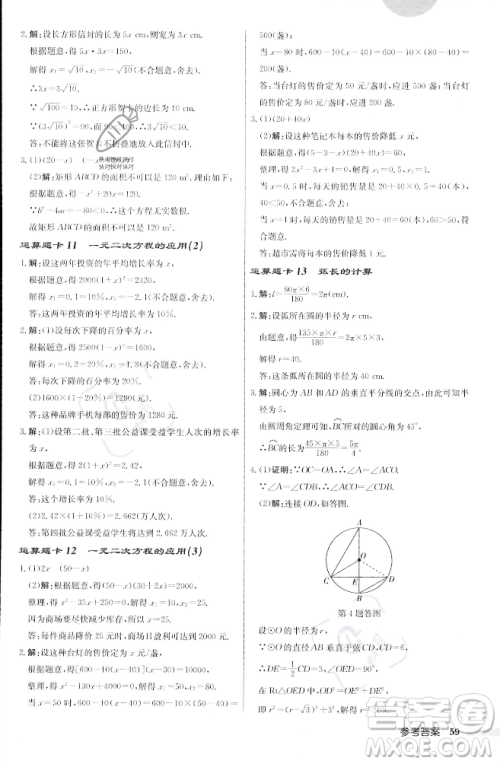 2.解:设长方形信封的长为5x cm,宽为3x cm.
根据题意,得5x·3x=150,
解得x₁=√10,x₂=-√10(不合题意,舍去)
∴3x=3√10.
∵√100=10,∴正方形贺卡的边长为10 cm.
∵(3√10)²=90,而90<100,∴3√10<10,
∴不能将这张贺卡不折叠地放入此信封中.
3.(1)(20-x)
(2)解:矩形ABCD的面积不可以是120 m².理由:
根据题意,得
故矩形ABCD的面积不可以为120 m².
运算题卡 11 一元二次方程的应用(2)
1.解:设这两年投资的年平均增长率为x.
根据题意,得2000(1+x)²=2420.
解得x₁=0.1=10%,x₂=-2.1(不合题意,舍去).
答:这两年投资的年平均增长率为10%.
2.解:(1)设每次下降的百分率为x.
根据题意,得2500(1-x)²=1600.
解得x₁=0.2=20%,x₂=1.8(不合题意,舍去).
答:每次下降的百分率为20%.
(2)1600×(1-20%)=1280(元).
答:这种品牌手机每部的售价为1280元.
3.解:(1)设第二批、第三批公益课受益学生人次的增长率
为x.
根据题意,得2(1+x)²=2.42,
解得x₁=0.1=10%,x₂=-2.1(不合题意,舍去).
答:这个增长率为10%.
(2)2.42×(1+10%)=2.662(万人次).
答:第四批公益课受益学生将达到2.662万人次.
运算题卡 12 一元二次方程的应用(3)
1.(1)2x (50-x)
(2)解:根据题意,得(50-x)(30+2x)=2100.
整理,得x²-35x+300=0,解得x₁=15,x₂=20.
∵商城要尽快减少库存,∴x=20.
答:每件商品降价20元时,商场日盈利可达2100元.
2.解:设这种台灯的售价为x元/盏.
根据题意,得[600-10(x-40)](x-30)=10000.
整理,得x²-130x+4000=0,解得x₁=50,x₂=80.
当x=50时,600-10(x-40)=600-10×(50-40)=
500(盏);
当x=80时,600-10(x-40)=600-10×(80-40)=
200(盏).
答:当台灯的售价为50元/盏时,应进500盏;
当台灯的售价为80元/盏时,应进200盏.
3.(1)(20+40x)
(2)解:设这种笔记本每本的售价降低x元.
根据题意,得(5-3-x)(20+40x)=60.
整理,得2x²-3x+1=0,解得x₁=0.5,x₂=1.
当x=0.5时,销售数量是20+40×0.5=40(本)<
50(本),不合题意,舍去.
当x=1时,销售数量是20+40×1=60(本)>50(本),符
合题意.
答:超市需将每本的售价降低1元.
运算题卡 13 弧长的计算
1.解:l=60π×6/180=2π(cm).
2.解:设弧所在圆的半径为r cm.
根据题意,得135×π×r/180=2π×5×3,
解得r=40.
答:这条弧所在圆的半径为40 cm.
3.解:圆心O为AB和BC的垂直平分线的交点,如图.
由圆周角定理,得
∴的长为45×π×5/180=5π/4.
4.(1)证明:∵OC=OA,∴∠A=∠OCA.
∵∠A=∠CDB,∴∠OCA=∠CDB.
(2)解:连接OD,如答图.
A
O
C
E
D
B
第4题答图
设⊙O的半径为r.
∵⊙O的直径AB垂直于弦CD,垂足为E,
∴DE=1/2CD=√3,∠OED=90°.
在Rt△OED中,OE²+DE²=OD²,
即(r-1)²+(√3)²=r²,解得r=2.
参考答案 59
答案圈